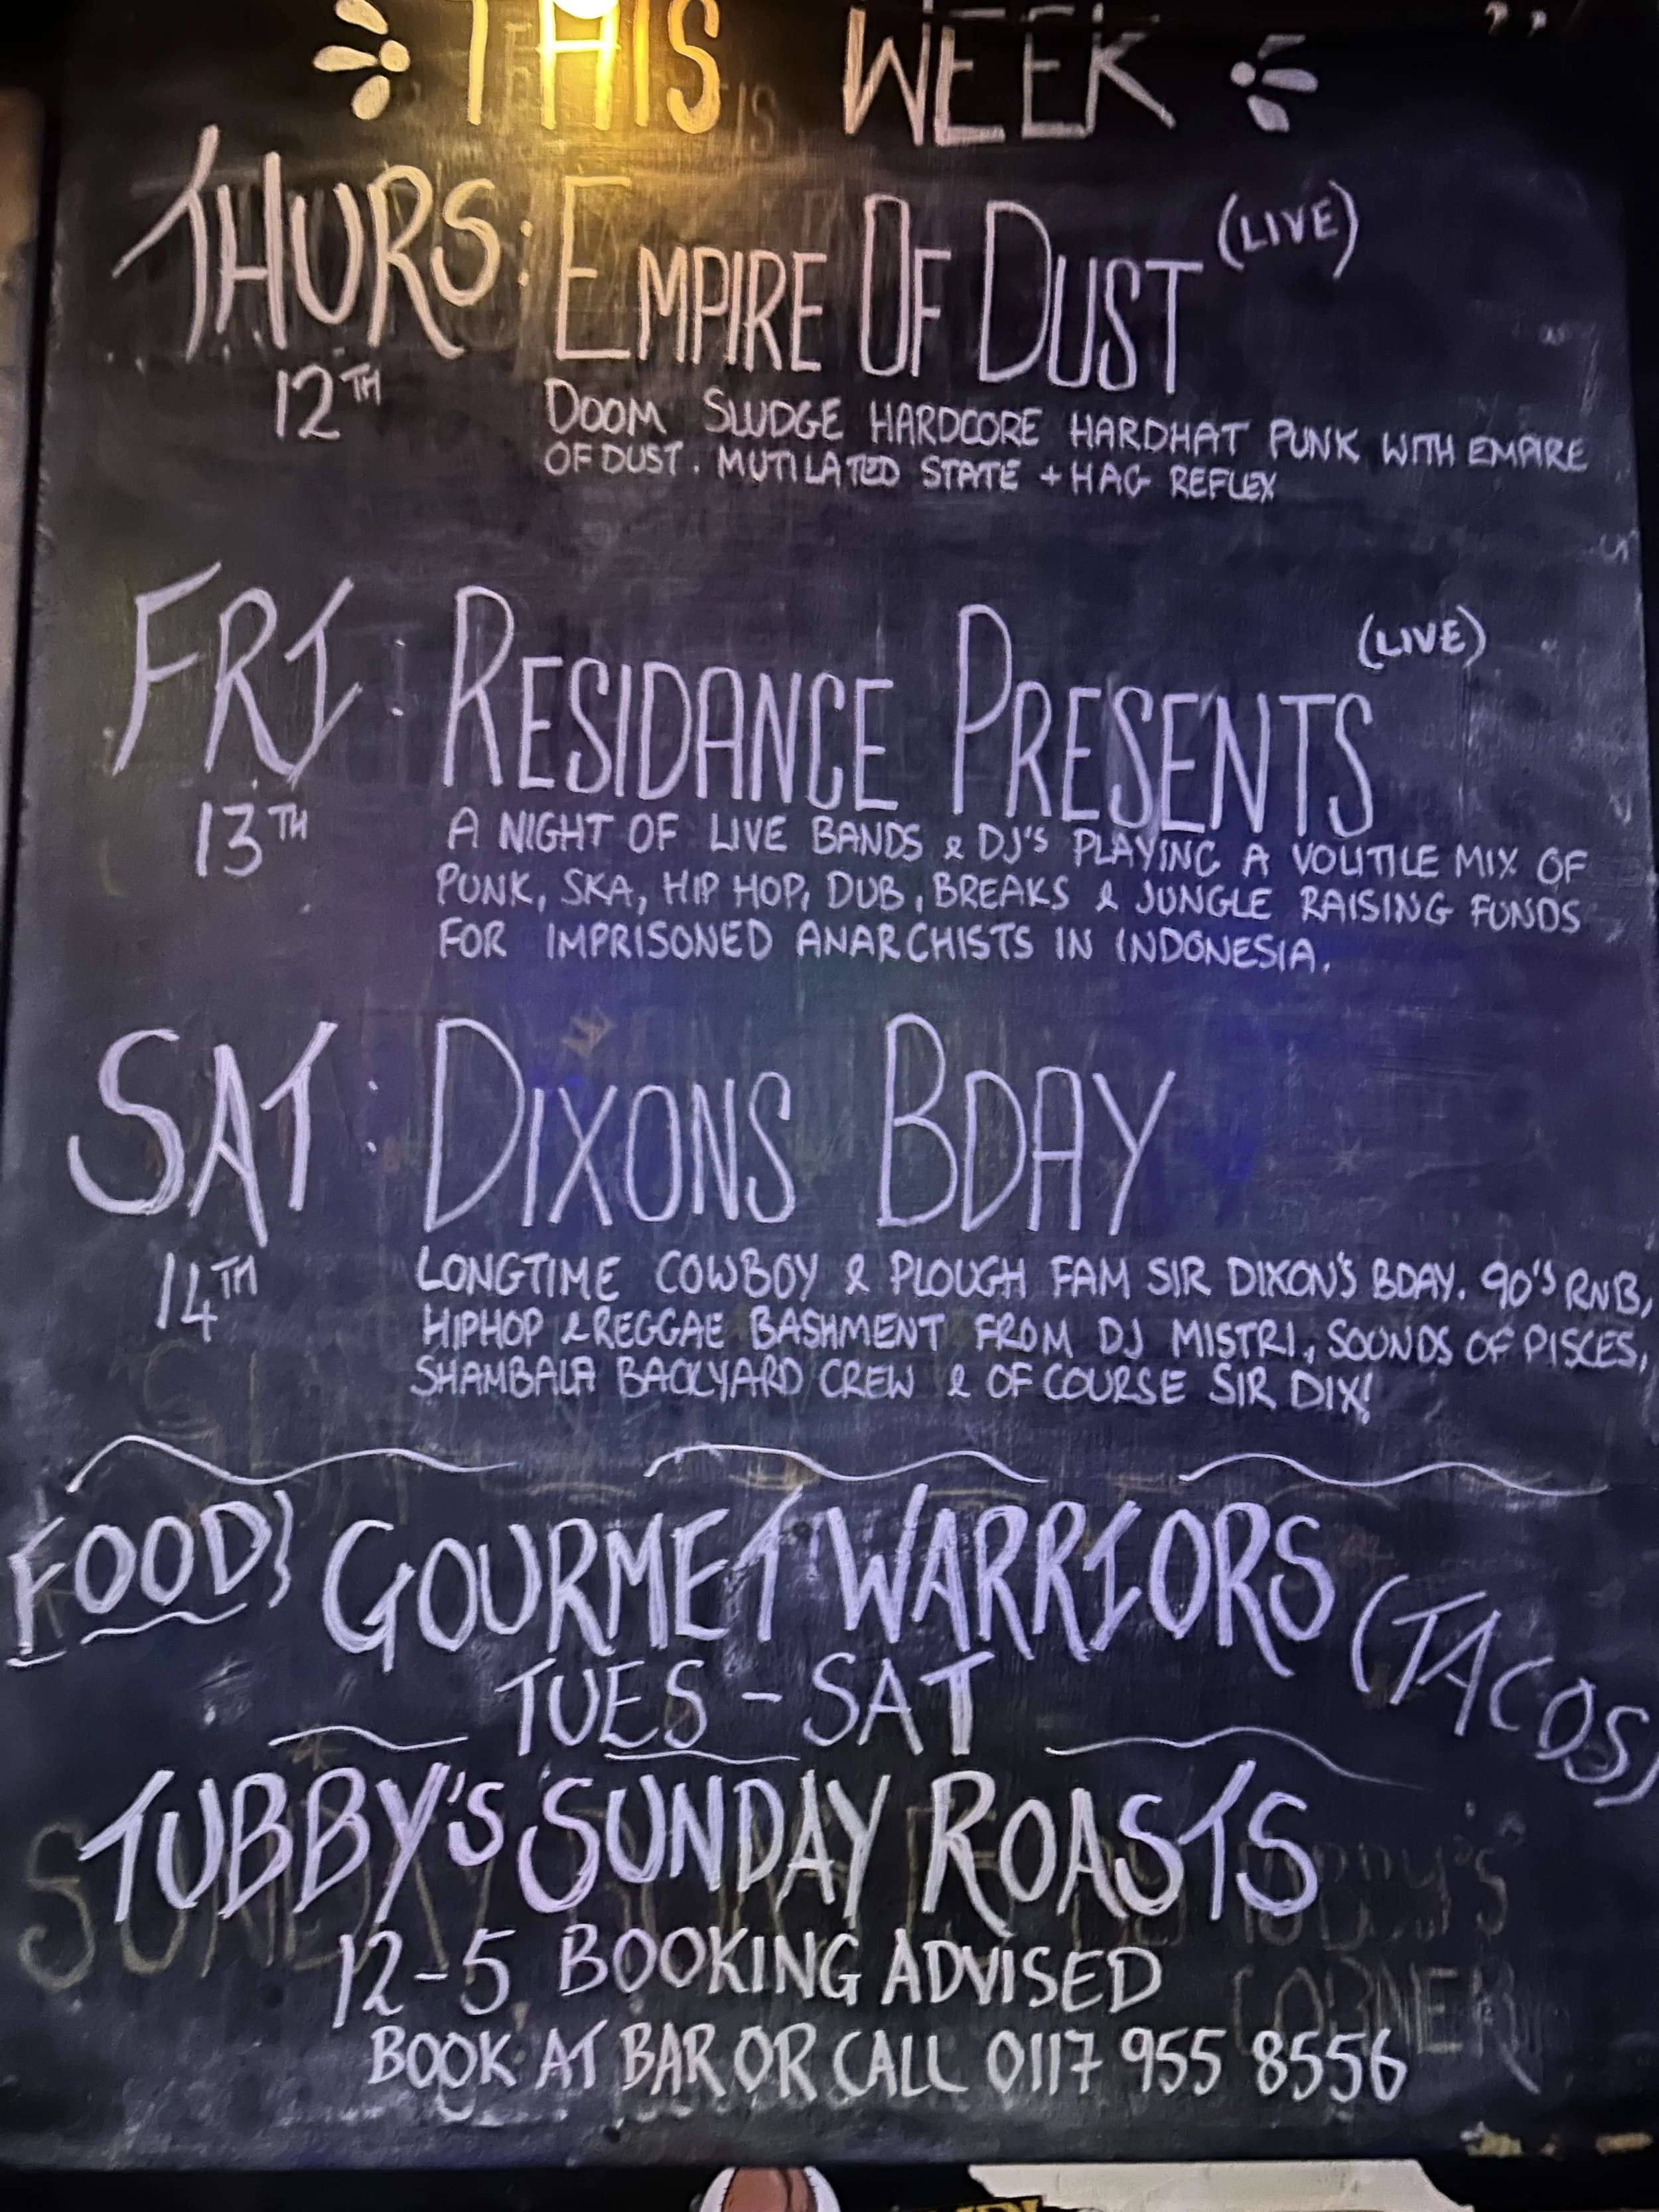 THIS WEEK
THURS: EMPIRE OF DUST (LIVE)
12TH
DOOM SLUDGE HARDCORE HARDHAT PUNK WITH EMPIRE
OF DUST. MUTILATED STATE + HAG REFLEX
FRI: RESIDANCE PRESENTS (LIVE)
13TH
A NIGHT OF LIVE BANDS & DJ'S PLAYING A VOLITILE MIX OF
PUNK, SKA, HIP HOP, DUB, BREAKS & JUNGLE RAISING FUNDS
FOR IMPRISONED ANARCHISTS IN INDONESIA.
SAT: DIXONS BDAY
14TH
LONGTIME COWBOY & PLOUGH FAM SIR DIXON'S BDAY. 90'S RNB,
HIPHOP & REGGAE BASHMENT FROM DJ MISTRI, SOUNDS OF PISCES,
SHAMBALA BACKYARD CREW & OF COURSE SIR DIX!
FOOD} GOURMET WARRIORS (TACOS)
TUES - SAT
TUBBY'S SUNDAY ROASTS
12-5 BOOKING ADVISED
BOOK AT BAR OR CALL 0117 955 8556